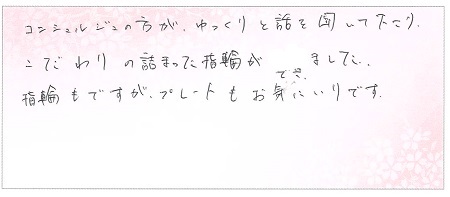 コンシェルジュの方が、ゆっくりと話を聞いて下さり、
こだわりの詰まった指輪ができました。
指輪もですが、プレートもお気にいりです。